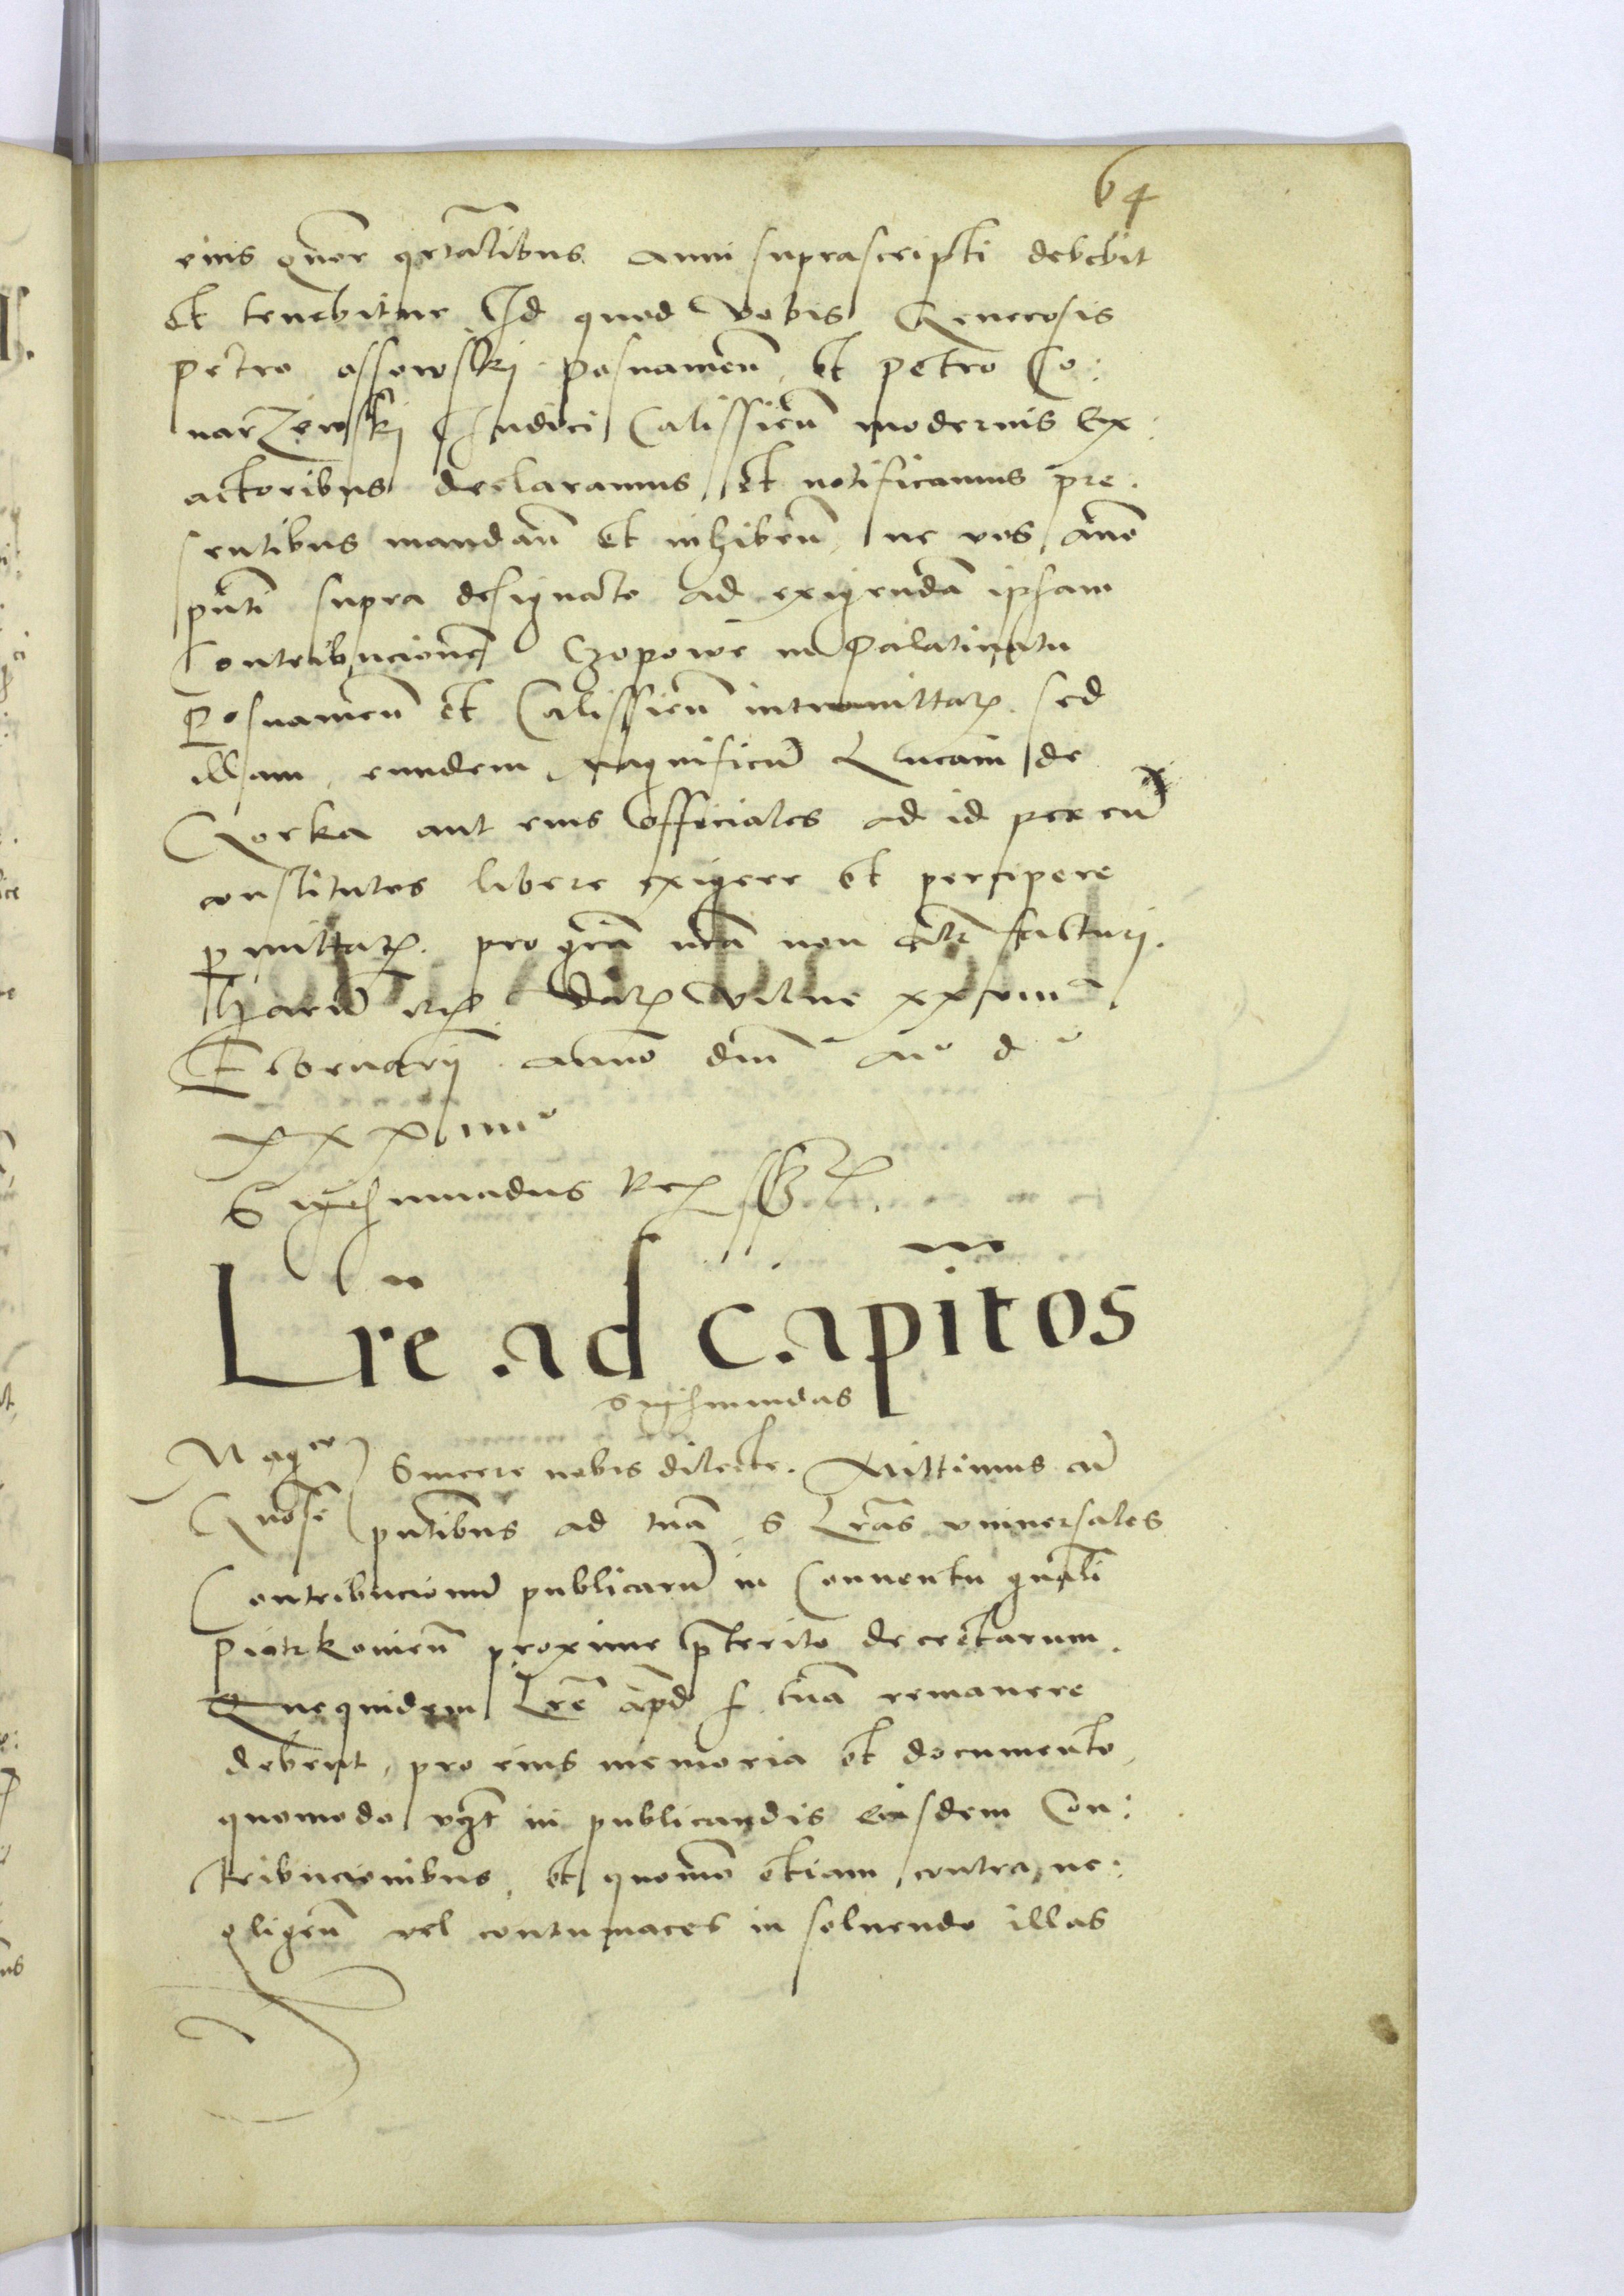 64
eius quor qrtalibus anni suprascripti debebit
et tenebitur Id quod vobis Generosis
Petro ossowskj Posnamen̄ et Petro Co:
narzewskj Iudici Calissien̄ modernis Ex:
actoribus declaramus et notificamus pre:
sentibus mandan̄ et inhiben̄, ne vos, āno
pn̄ti supra designato ad exigendā ipsam
Contribucionē Czopowe in Palatinatu
Posnamen̄ et Calissien̄ intromittatꝭ. sed
illam, eundem Magnificū Lucam de
Gorka aut eius officiales ad id per eū
constitutos libere exigere et percipere
ꝑmittatꝭ. pro gr̄a nr̄a non alr̄ facturi.
Harū Datꝭ Vilne xxviiiᵃ
Februarij anno dn̄i mᵒ dᵒ
xxxiiiiᵒ
Sigismundus Rex ss
Lr̄e ad capitos
Sigismundus
Mag͞ce Sincere nobis dilecte. Mittimus cū
Gnōse pn̄tibus ad tuā S Lr̄as vniuersales
Contribucionū publicarū in Conuentu gn̄ali
Piotrkouien̄ proxime p̄terito decretarum.
Quequidem Lr̄e apd S. tuā remanere
debent, pro eius memoria et documento,
quomodo vz̄t in publicandis eisdem Con:
tribucionibus, et quomō etiam contra ne:
gligen̄ vel contumaces in soluendo illas